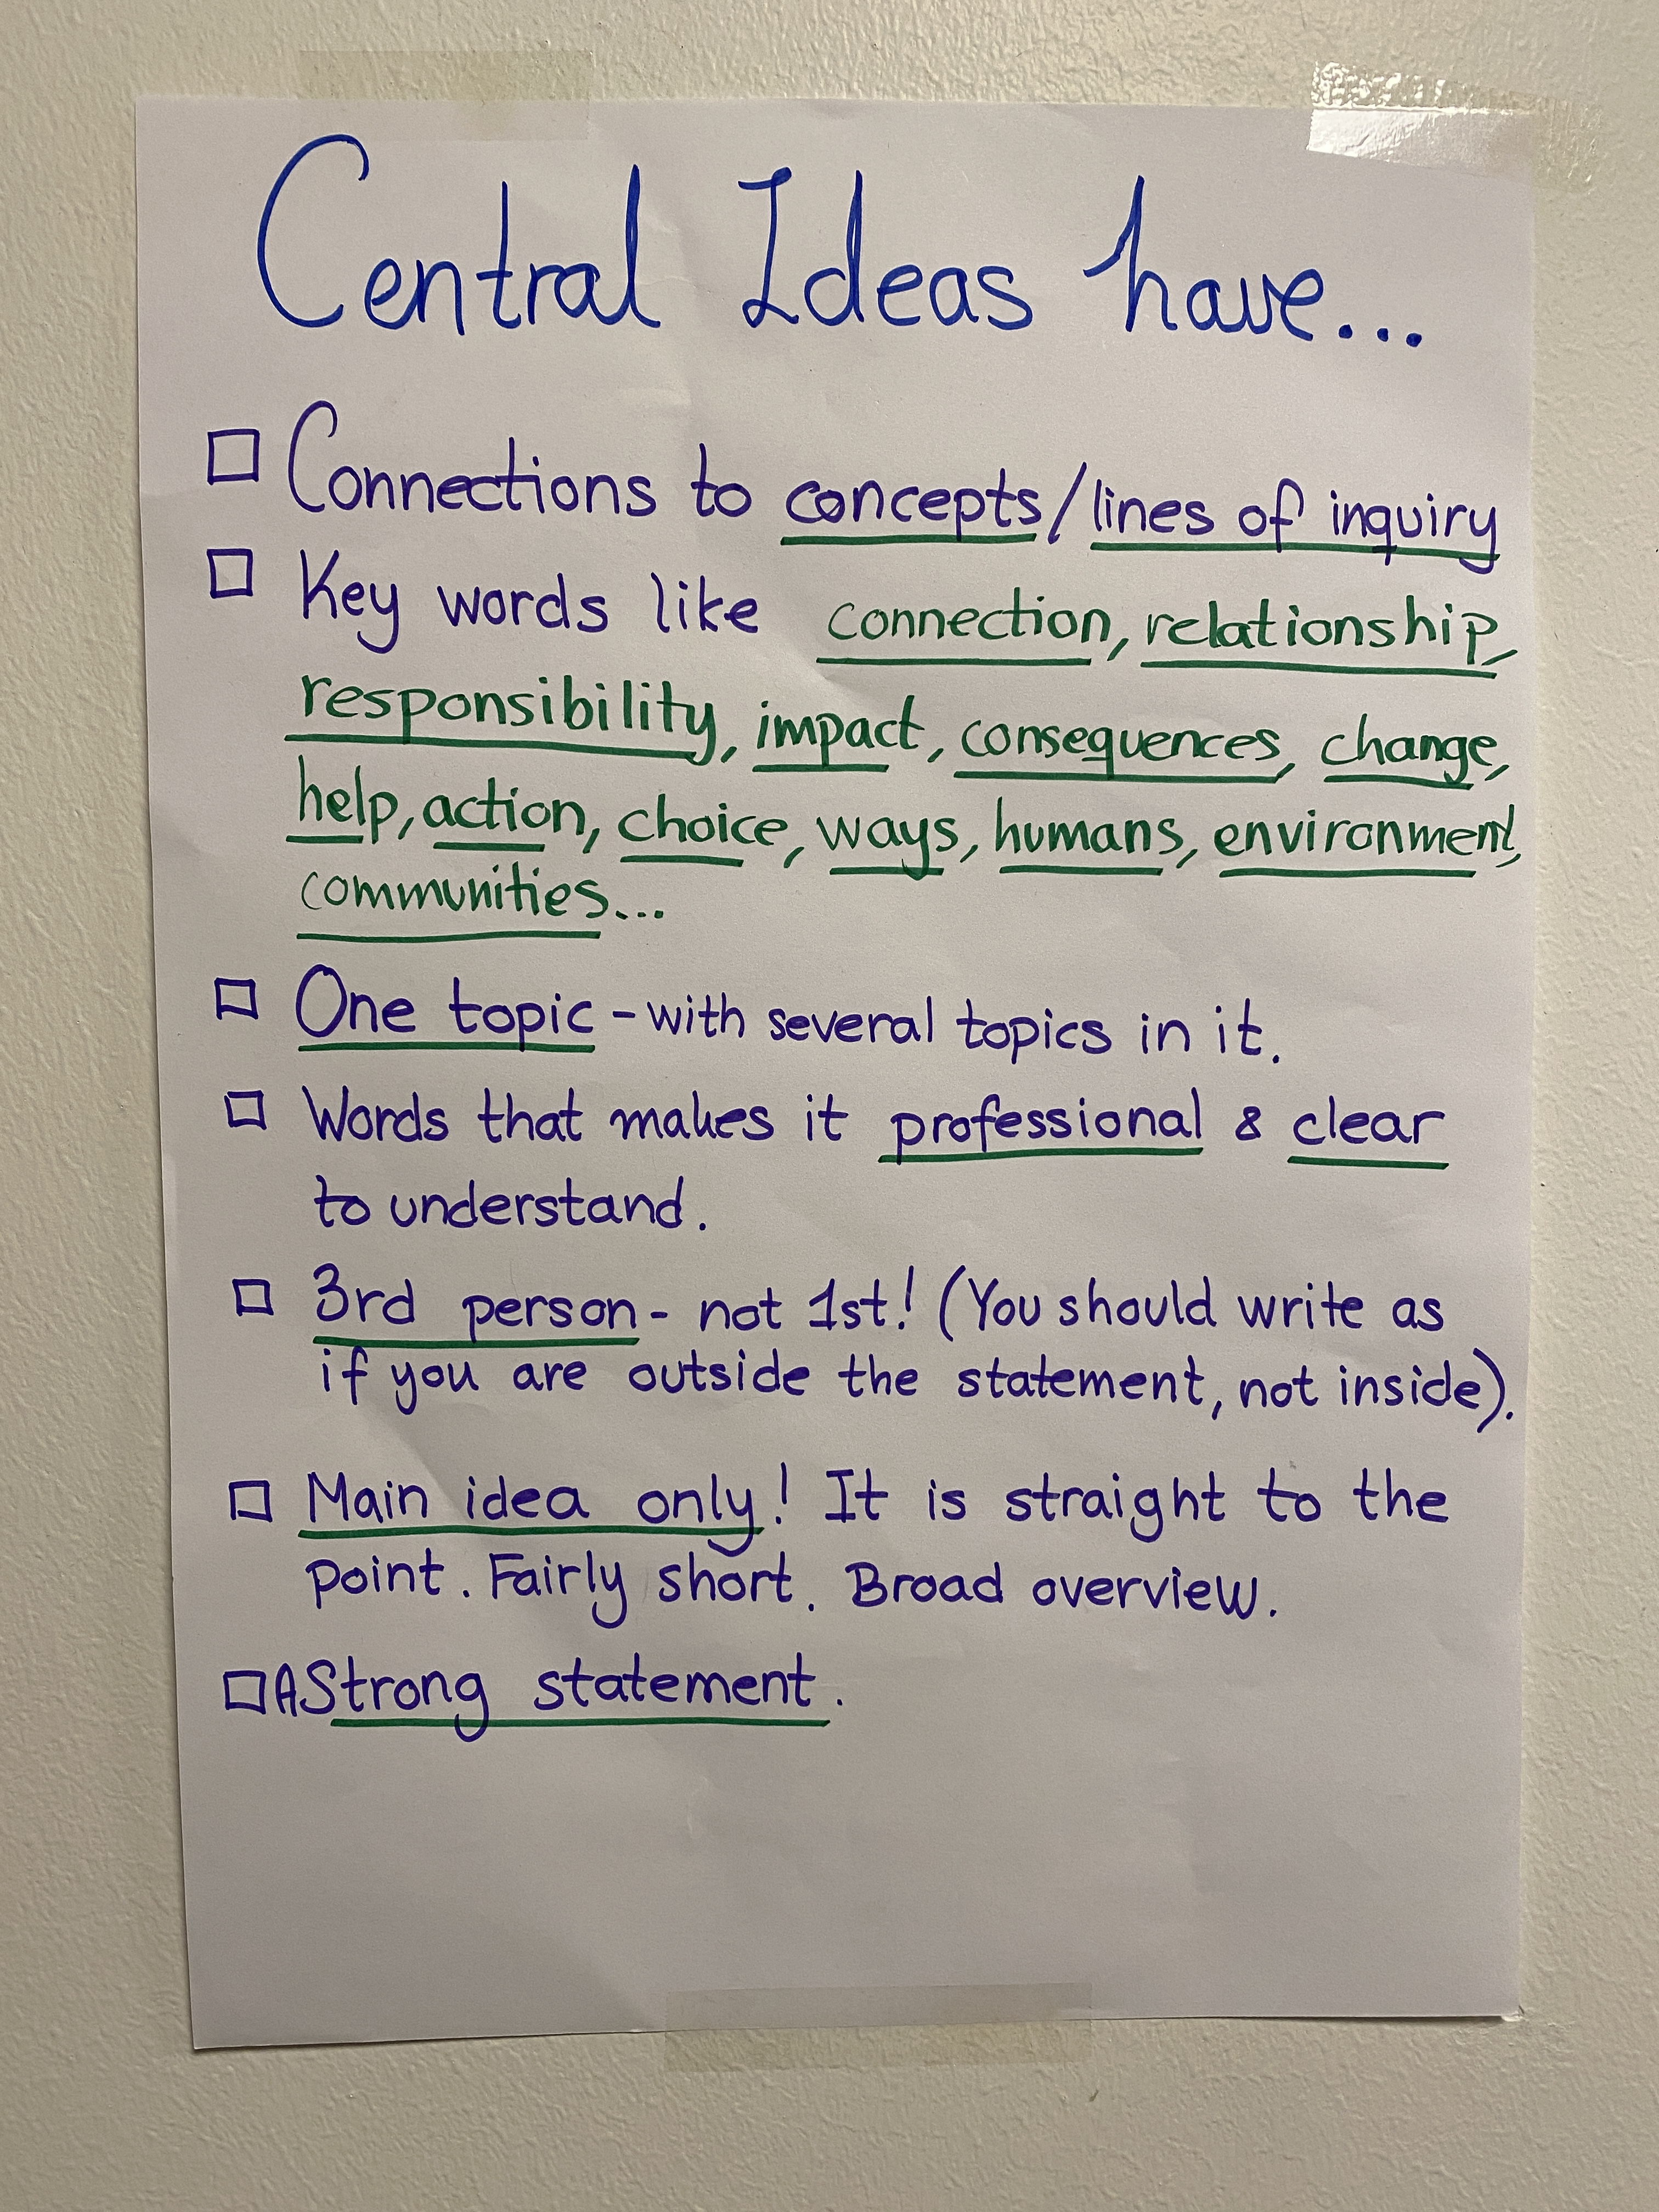 Central Ideas have...
□ Connections to concepts/lines of inquiry
□ Key words like connection, relationship,
responsibility, impact, consequences, change,
help, action, choice, ways, humans, environment,
communities...
□ One topic - with several topics in it.
□ Words that makes it professional & clear
to understand.
□ 3rd person - not 1st! (You should write as
if you are outside the statement, not inside).
□ Main idea only! It is straight to the
point. Fairly short. Broad overview.
□ A Strong statement.